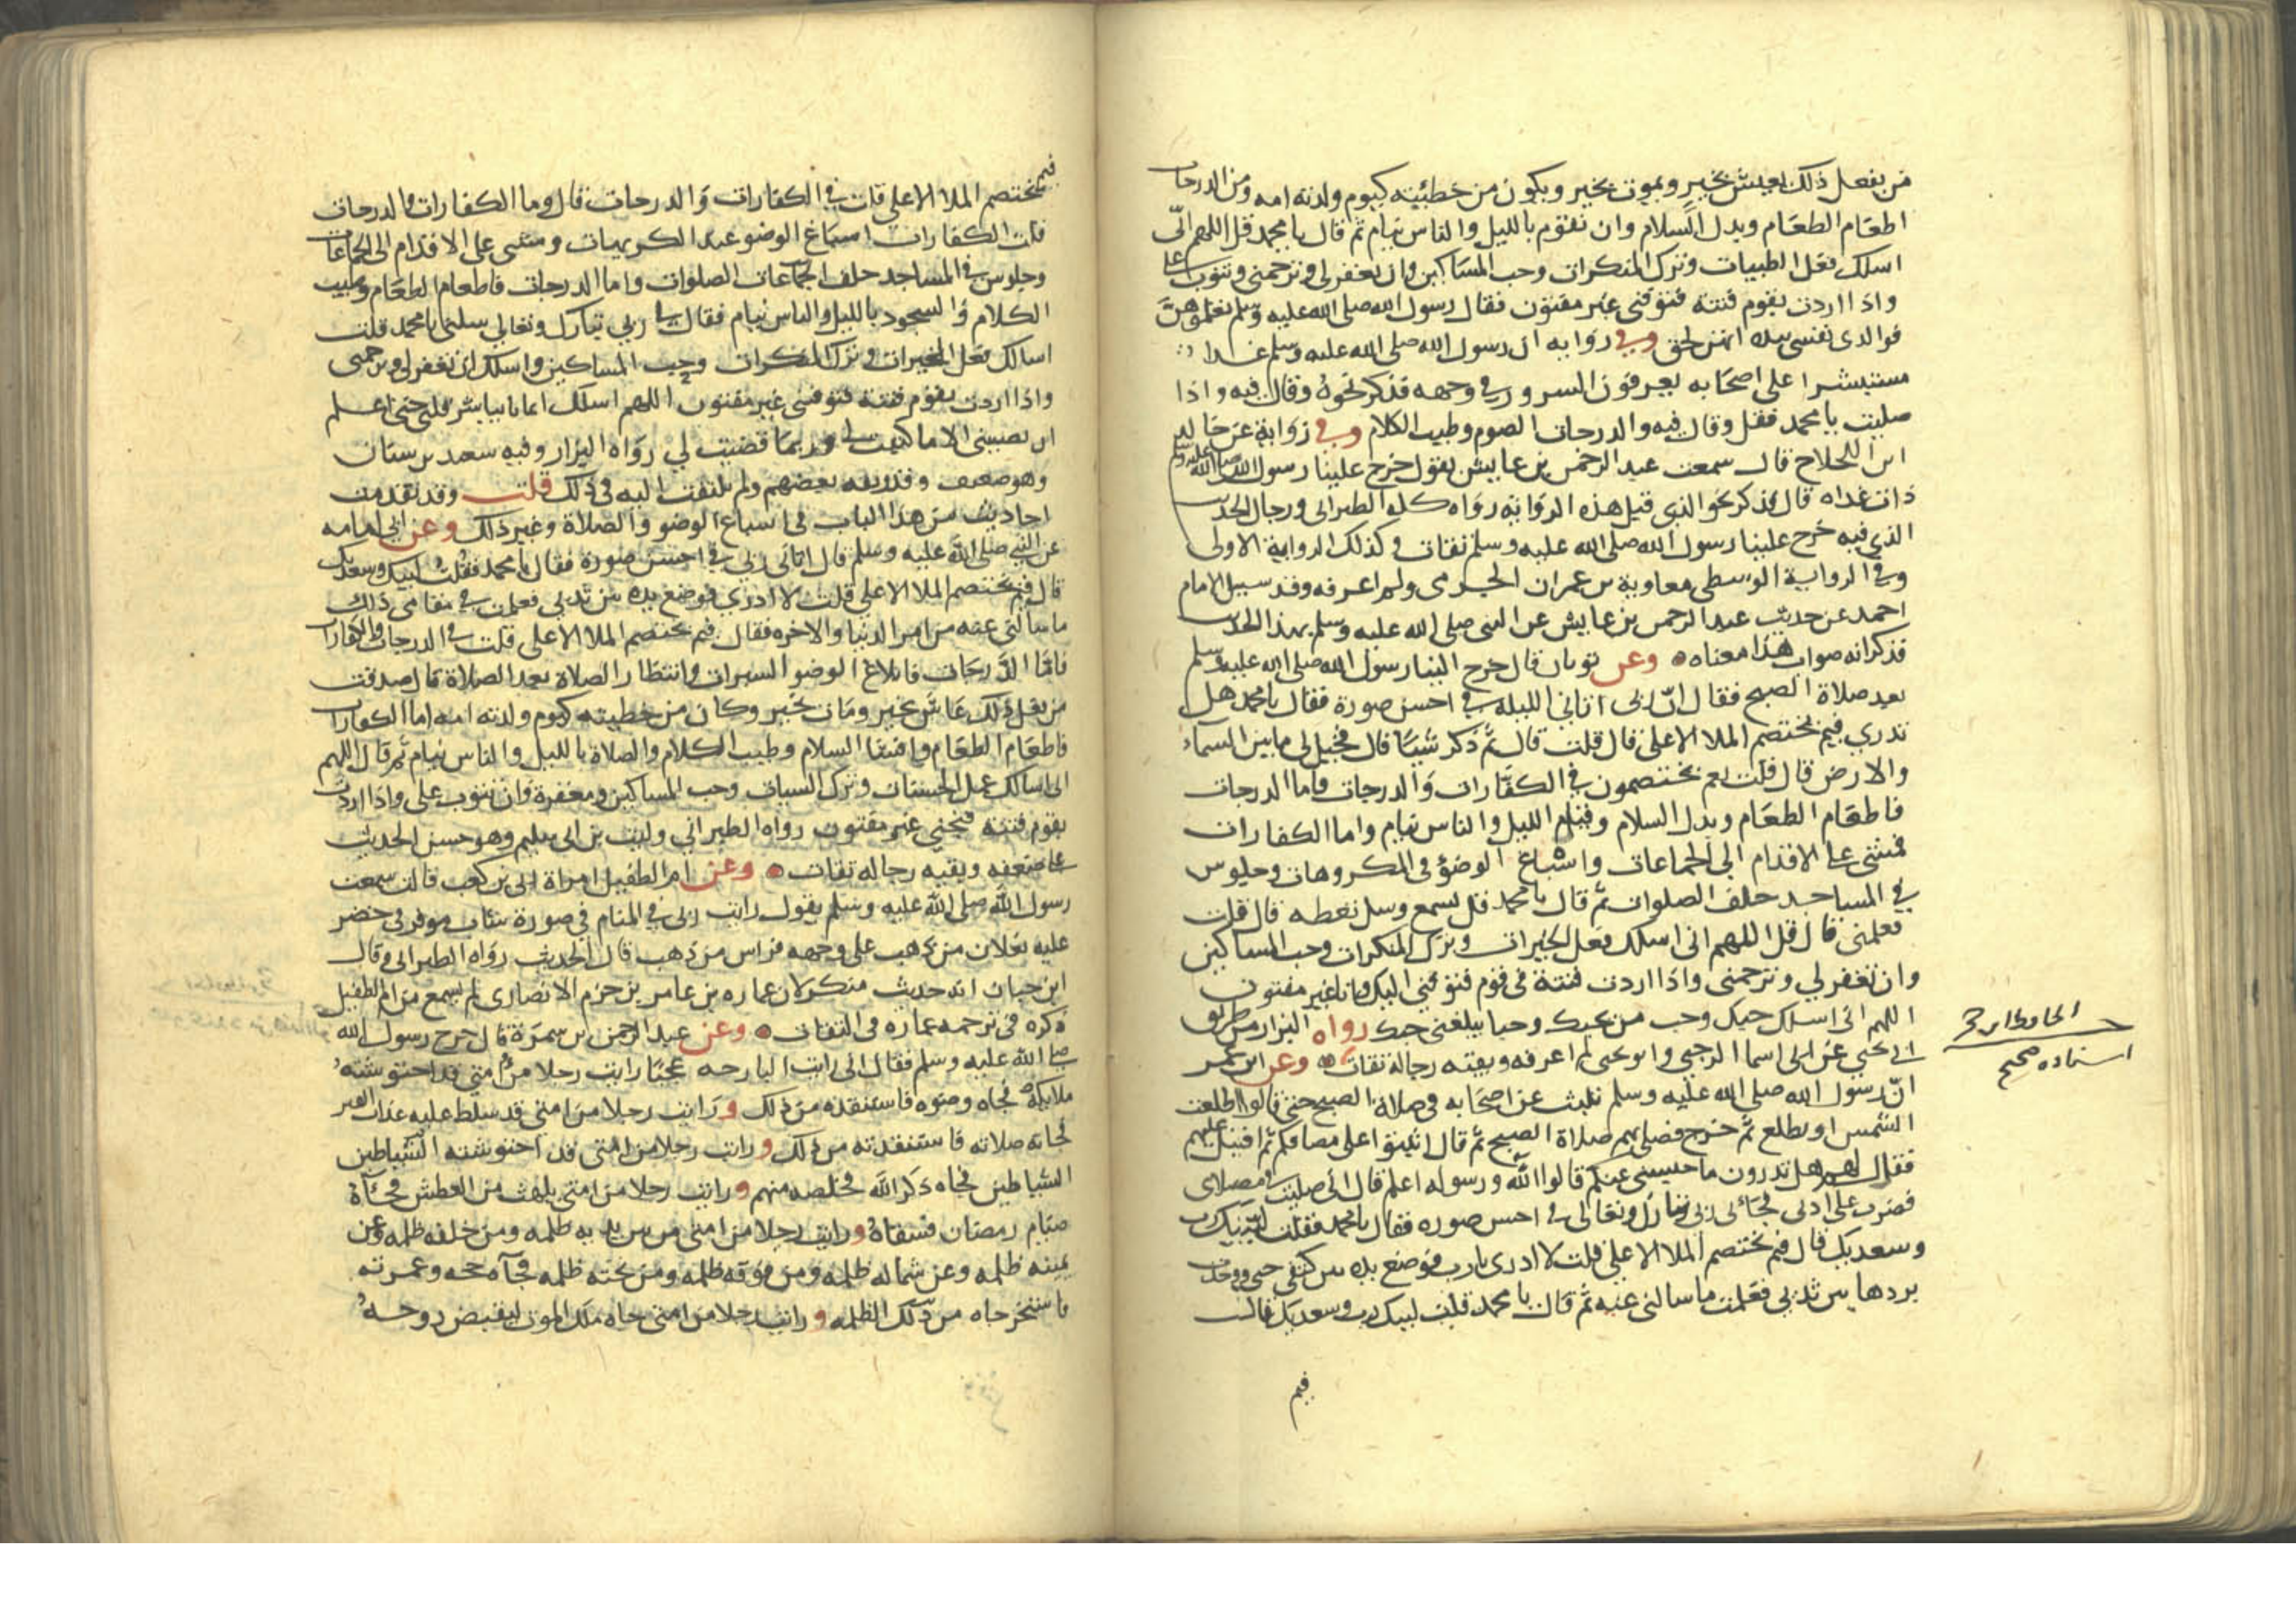 من يفعل ذلك يعيش بخير ويموت بخير ويكون من خطيئته كيوم ولدته امه ومن الدرجات
اطعام الطعام وبدل السلام وان تقوم بالليل والناس نيام ثم قال يا محمد قل اللهم انّي
اسلك فعل الطيبات وترك المنكرات وحب المساكين وان تغفر لي وترحمني وتتوب علي
واذا اردت بقوم فتنة فتوفني غير مفتون فقال رسول الله صلى الله عليه وسلم تعلموهنّ
فوالذي نفسي بيده انهن لحق وفي رواية ان رسول الله صلى الله عليه وسلم غدا
مستبشرا على اصحابه يعرفون السرور في وجهه فذكر نحوه وقال فيه واذا
صليت يا محمد فقل وقال فيه والدرجات الصوم وطيب الكلام وفي رواية عن خالد
ابن اللجلاج قال سمعت عبد الرحمن بن عايش يقول خرج علينا رسول الله صلى الله عليه وسلم
ذات غداه قال فذكر نحو الذي قبل هذه الرواية رواه كله الطبراني ورجال الحديث
الذي فيه خرج علينا رسول الله صلى الله عليه وسلم ثقات وكذلك الرواية الاولى
وفي الرواية الوسطى معاوية بن عمران الجرمي ولم اعرفه وقد سيل الامام
احمد عن حديث عبد الرحمن بن عايش عن النبي صلى الله عليه وسلم بهذا الحديث
فذكر انه صواب هذا معناه وعن ثوبان قال خرج الينا رسول الله صلى الله عليه وسلم
بعد صلاة الصبح فقال انّ ربي اتاني الليلة في احسن صورة فقال يا محمد هل
تدري فيم يختصم الملا الاعلى قال قلت قال ثم ذكر شيئا قال فخيل لي ما بين السماء
والارض قال قلت نعم يختصمون في الكفارات والدرجات فاما الدرجات
فاطعام الطعام وبدل السلام وقيام الليل والناس نيام واما الكفارات
فمشي على الاقدام الى الجماعات واسباغ الوضوء في المكروهات وجلوس
في المساجد خلف الصلوات ثم قال يا محمد قل يسمع وسل تعطه قال قلت
فعلمني قال قل اللهم اني اسلك فعل الخيرات وترك المنكرات وحب المساكين
وان تغفر لي وترحمني واذا اردت فتنة في قوم فتوفني اليك وانا غير مفتون
اللهم اني اسلك حبك وحب من يحبك وحبا يبلغني حبك رواه البزار من طريق
ابي يحيى عن ابي اسما الرحبي وابو يحيى لم اعرفه وبقيته رجاله ثقات وعن ابن عمر
انّ رسول الله صلى الله عليه وسلم تلبث عن اصحابه في صلاة الصبح حتى قالوا اطلعت
الشمس او تطلع ثم خرج فصلى بهم صلاة الصبح ثم قال اثبتوا على مصافكم ثم اقبل عليهم
فقال لهم هل تدرون ما حبسني عنكم قالوا الله ورسوله اعلم قال اني صليت في مصلاي
فضرب على اذني فجائني ربي تبارك وتعالى في احسن صوره فقال يا محمد فقلت لبيك رب
وسعديك قال فيم يختصم الملا الاعلى قلت لا ادري يا رب فوضع يده بين كتفي حتى وجدت
بردها بين ثديي فعلمت ما سالني عنه ثم قال يا محمد قلت لبيك رب وسعديك قال
فيم
اسناده صحيح
فيم يختصم الملا الاعلى قلت في الكفارات والدرجات قال وما الكفارات والدرجات
قلت الكفارات اسباغ الوضو عند الكريهات ومشى على الاقدام الى الجماعات
وجلوس في المساجد خلف الجماعات الصلوات واما الدرجات فاطعام الطعام وطيب
الكلام والسجود بالليل والناس نيام فقال لي ربي تبارك وتعالى سلني يا محمد قلت
اسالك فعل الخيرات وترك المنكرات وحب المساكين واسلك ان تغفر لي وترحمني
واذا اردت بقوم فتنة فتوفني غير مفتون اللهم اسلك ايمانا يباشر قلبي حتى اعلم
ان لا يصيبني الا ما كتبت لي وبما قضيت لي رواه البزار وفيه سعد بن سنان
وهو ضعيف وقد وثقه بعضهم ولم يلتفت اليه في ذلك قلت وقد تقدمت
احاديث من هذا الباب في اسباغ الوضو والصلاة وغير ذلك وعن ابي امامه
عن النبي صلى الله عليه وسلم قال اتاني ربي في احسن صورة فقال يا محمد فقلت لبيك وسعديك
قال فيم يختصم الملا الاعلى قلت لا ادري فوضع يده بين ثديي فعلمت في مقامي ذلك
ما سالني عنه من امر الدنيا والاخره فقال فيم يختصم الملا الاعلى قلت في الدرجات والكفارات
فامّا الدرجات فابلاغ الوضو السبرات وانتظار الصلاة بعد الصلاة قال صدقت
من يفعل ذلك عاش بخير ومات بخير وكان من خطيته كيوم ولدته امه اما الكفارات
فاطعام الطعام وافشا السلام وطيب الكلام والصلاة بالليل والناس نيام ثم قال اللهم
اني اسالك عمل الحسنات وترك السيات وحب المساكين ومغفرة وان تتوب علي واذا اردت
بقوم فتنة فنجني غير مفتون رواه الطبراني وليث بن ابي سليم وهو حسن الحديث
على ضعفه وبقية رجاله ثقات وعن ام الطفيل امراة ابي بن كعب قالت سمعت
رسول الله صلى الله عليه وسلم يقول رايت ربي في المنام في صورة شاب موفر في خضر
عليه نعلان من ذهب على وجهه فراش من ذهب قال الحديث رواه الطبراني وقال
ابن حبان انه حديث منكر لان عماره بن عامر بن حزم الانصاري لم يسمع من ام الطفيل
ذكره في ترجمه عماره في الثقات وعن عبد الرحمن بن سمرة قال خرج رسول الله
صلى الله عليه وسلم فقال اني رايت البارحه عجبا رايت رجلا من امتي قد احتوشته
ملايكة فجاه وضوه فاستنقذه من ذلك ورايت رجلا من امتي قد سلط عليه عذاب القبر
فجاته صلاته فاستنقذته من ذلك ورايت رجلا من امتي قد احتوشته الشياطين
الشياطين فجاه ذكر الله فخلصه منهم ورايت رجلا من امتي يلهث من العطش فجاة
صيام رمضان فسقاه ورايت رجلا من امتي من بين يديه ظلمه ومن خلفه ظلمه وعن
يمينه ظلمه وعن شماله ظلمه ومن فوقه ظلمه ومن تحته ظلمه فجاه حجه وعمرته
فاستخرجاه من تلك الظلمه ورايت رجلا من امتي جاه ملك الموت ليقبض روحه